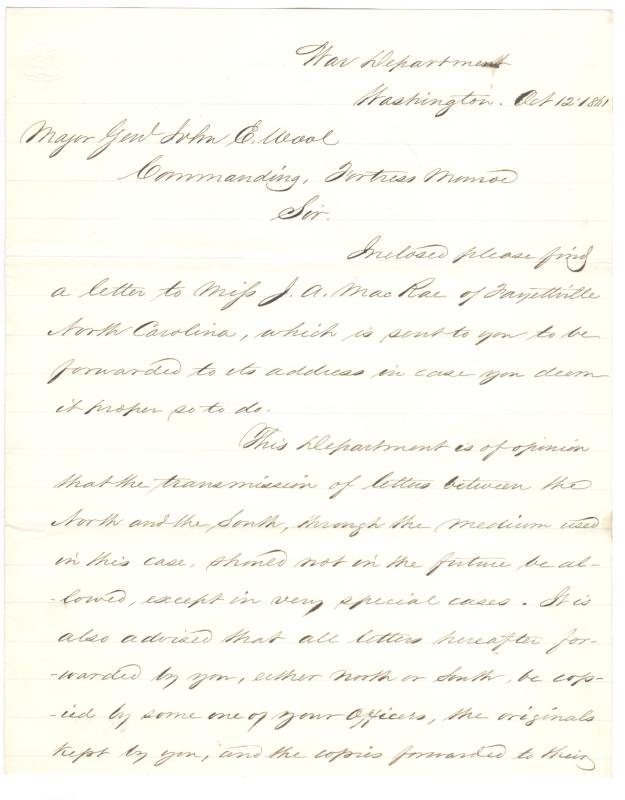 War Department
Washington. Oct 12' 1861
Major Genl John E. Wool
Commanding, Fortress Monroe
Sir.
Inclosed please find
a letter to Miss J. A. MacRae of Fayettville
North Carolina, which is sent to you to be
forwarded to its address in case you deem
it proper so to do.
This Department is of opinion
that the transmission of letters between the
North and the South, through the medium used
in this case, should not in the future be al-
-lowed, except in very special cases. It is
also advised that all letters hereafter for-
-warded by you, either North or South, be cop-
-ied by some one of your Officers, the originals
kept by you, and the copies forwarded to their